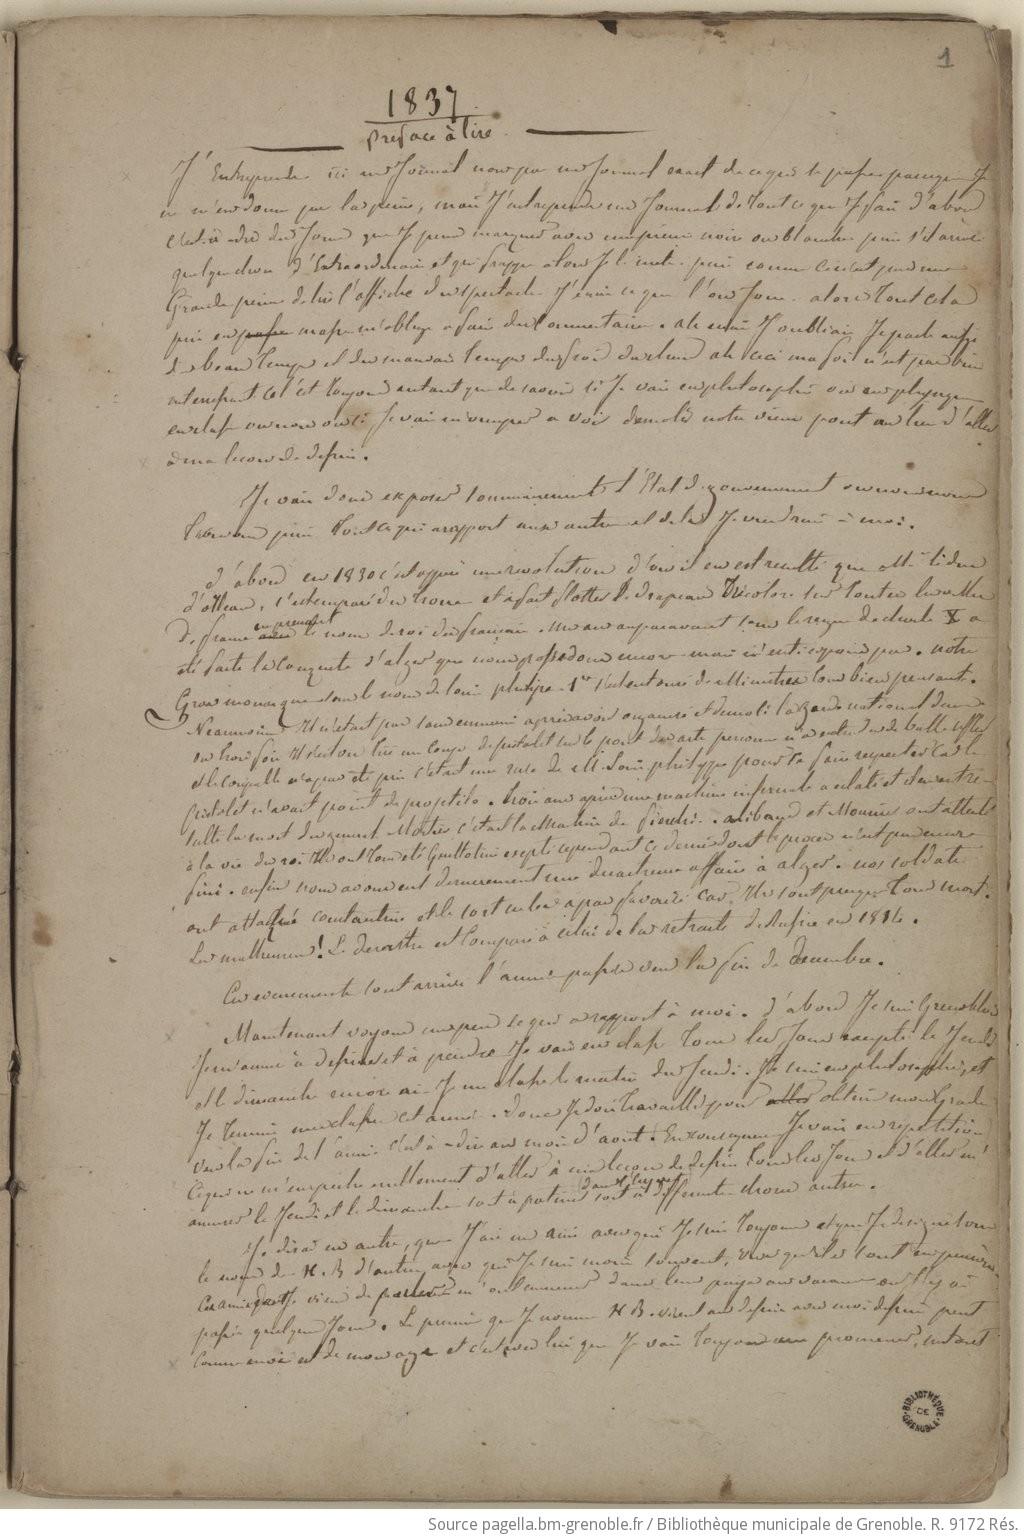 1
1837
Preface à lire
J'Entreprendre ici un Journal non pas un Journal exact de ce qui se passe parceque Je
ne m'en donne pas la peine, mais J'entreprends un Journal de tout ce que Je fais d'abord
c'est à dire des Jours que Je peux marquer avec une pierre noire ou blanche puis s'il arrive
quelque chose d'Extraordinaire et qui frappe alors Je le mets puis comme ce n'est pas une
Grande peine de lire l'affiche du spectacle J'écris ce que l'on Joue. alors tout cela
puis en passe m'oblige a faire des Commentaires. ah mais J'oubliais Je parle aussi
du beau temps et du mauvais temps du froid du chaud ah ceci ma foi n'est pas bien
interessant cela c'est toujours autant que de savoir si Je vais en philosophie ou en physique
en classe ou non ou si Je vais m'occuper a voir demolir notre vieux pont au lieu d'aller
à ma lecon de dessin.
Je vais donc exposer sommairement l'Etat du gouvernement ou nous nous
trouvons puis tout ce qui a rapport aux autres et de là Je viendrai à moi.
d'abord en 1830 c'est opéré une revolution d'où il en est resulté que M. le duc
d'orléans, s'est emparé du trone et a fait flotter le drapeau tricolore sur toutes les villes
de france en prenant le nom de roi des français. un an auparavant sous le regne de charle X a
été faite la Conquete d'alger que nous possedons encore mais n'anticipons pas. notre
Gros monarque sous le nom de louis philippe 1er s'est entouré de Ministres tous bien pensants.
Neanmoins Il n'etait pas sans ennemi après avoir organisé et demoli la garde national deux
ou trois fois Il s'est vu tiré un coup de pistolet sur le pont des arts personne n'a entendu de balle siffler
et le coupable n'a pas été pris c'était une ruse de M. louis philippe pour se faire respecter Car le
pistolet n'avait point de projectile. trois ans après une machine infernale a eclaté et du entre
autre la mort du general Mortier c'était la Machine de fieschi. alibaud et Meunier ont attenté
à la vie du roi Ils ont tous été Guillotiné excepté cependant ce dernier dont le procès n'est pas encore
fini. enfin nous avons eu dernierement une desastreuse affaire à alger. nos soldats
ont attaqué constantine et le sort ne les a pas favorisé car Ils sont presque tous mort.
Les malheureux! Le desastre est Comparé à celui de la retraite de Russie en 1814.
Ces evenements sont arrivés l'année passée vers la fin de decembre.
Maintenant voyons un peu ce qui a rapport à moi. d'abord Je suis Grenoblois
Je m'amuse à dessiner et à peindre Je vais en classe tous les Jours excepté le Jeudi
et le dimanche encore ai-Je une classe le matin du Jeudi. Je suis en philosophie, et
Je termine mes classes cet année. donc Je dois travailler pour aller obtenir mon Grade
vers la fin de l'année c'est à-dire au mois d'aout. En consequence Je vais en repetition
Ce qui ne m'empeche nullement d'aller à ma lecon de dessin tous les Jours et d'aller m'
amuser le Jeudi et le dimanche soit à patiner soit à differentes choses autres.
Je dirai en outre, que J'ai un ami avec qui Je suis toujours et que Je designe sous
le nom de H. B d'autres avec qui Je suis moins souvent, parce qu'ils sont en pension
Ces amis dont Je viens de parler m'ont emmené dans leur pays aux vacances ou J'y ai
passé quelques Jours. Le premier que Je nomme H B. vient au dessin avec moi dessine peut
comme moi est de mon age et c'est avec lui que Je vais toujours me promener, mettant
BIBLIOTHÈQUE DE GRENOBLE
Source pagella.bm-grenoble.fr / Bibliothèque municipale de Grenoble. R. 9172 Rés.